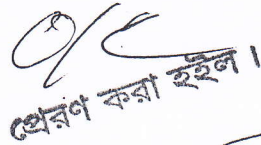 O/C
প্রেরণ করা হইল।